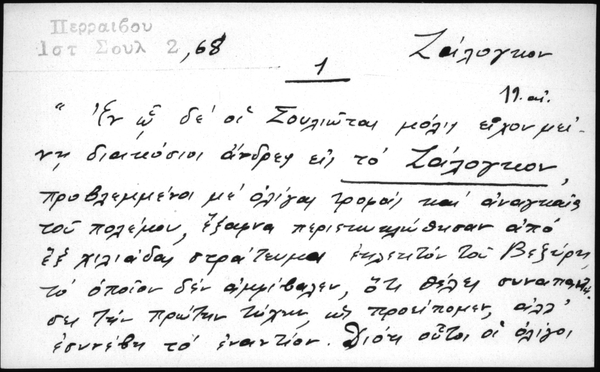 Περραιβου
Ιστ Σουλ 2,68
Ζάλογκον
1
19. αι.
" Ἐν ᾧ δέ οἱ Σουλιῶται μόλις εἶχον μεί-
νῃ διακόσιοι ἄνδρες εἰς τό Ζάλογκον,
προβλεμμένοι μέ ὀλίγας τροφάς καί ἀναγκαῖα
τοῦ πολέμου, ἔξαφνα περιεκυκλώθησαν ἀπό
ἕξ χιλιάδας στράτευμα ἐκλεκτόν τοῦ Βεζύρη,
τό ὁποῖον δέν ἀμφίβαλεν, ὅτι θέλει συναπαντή-
σει τήν πρώτην τύχην, ὡς προείπομεν, ἀλλ'
ἐσυνέβη τό ἐναντίον. Διότι οὗτοι οἱ ὀλίγοι